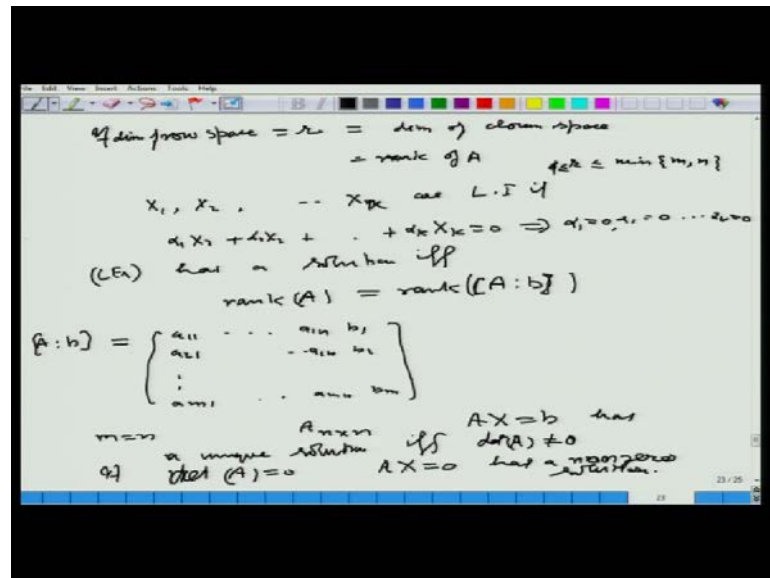 File Edit View Insert Actions Tools Help
If dim of row space = r = dim of cloumn space
= rank of A
r ≤ min {m, n}
X1, X2, -- Xk are L.I if
α1 X1 + α2 X2 + . . + αk Xk = 0 ⇒ α1 = 0, α2 = 0 ... αk = 0
(LEn) has a solution iff
rank (A) = rank ([A : b])
[A : b] = [ a11 . . . a1n b1
a21 . . a2n b2
:
am1 . . amn bm ]
m = n A n×n AX = b has
a unique solution iff det(A) ≠ 0
If det (A) = 0 AX = 0 has a nonzero
solution.
23 / 25
23